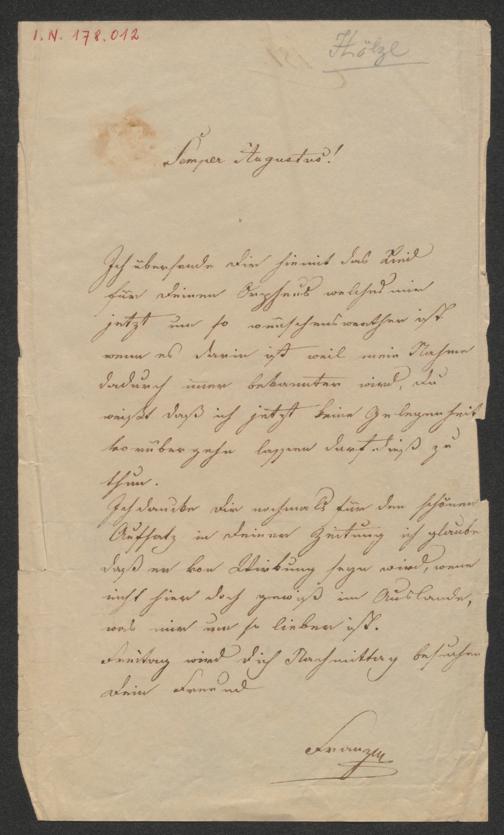 I. N. 178.012
Hölzl
Semper Augustus!
Ich übersende Dir hiemit das Lied
für Deinen Orpheus welches mir
jetzt um so wünschenswerther ist
wenn es darin ist weil mein Nahme
dadurch immer bekannter wird, du
weißt daß ich jetzt keine Gelegenheit
vorübergehn lassen darf dieß zu
thun.
Ich dancke Dir nochmals für den schönen
Aufsatz in Deiner Zeitung ich glaube
daß er von Wirkung seyn wird, wenn
nicht hier doch gewiß im Auslande,
was mir um so lieber ist.
Freitag wird dich Nachmittag besuchen
Dein Freund
Franz